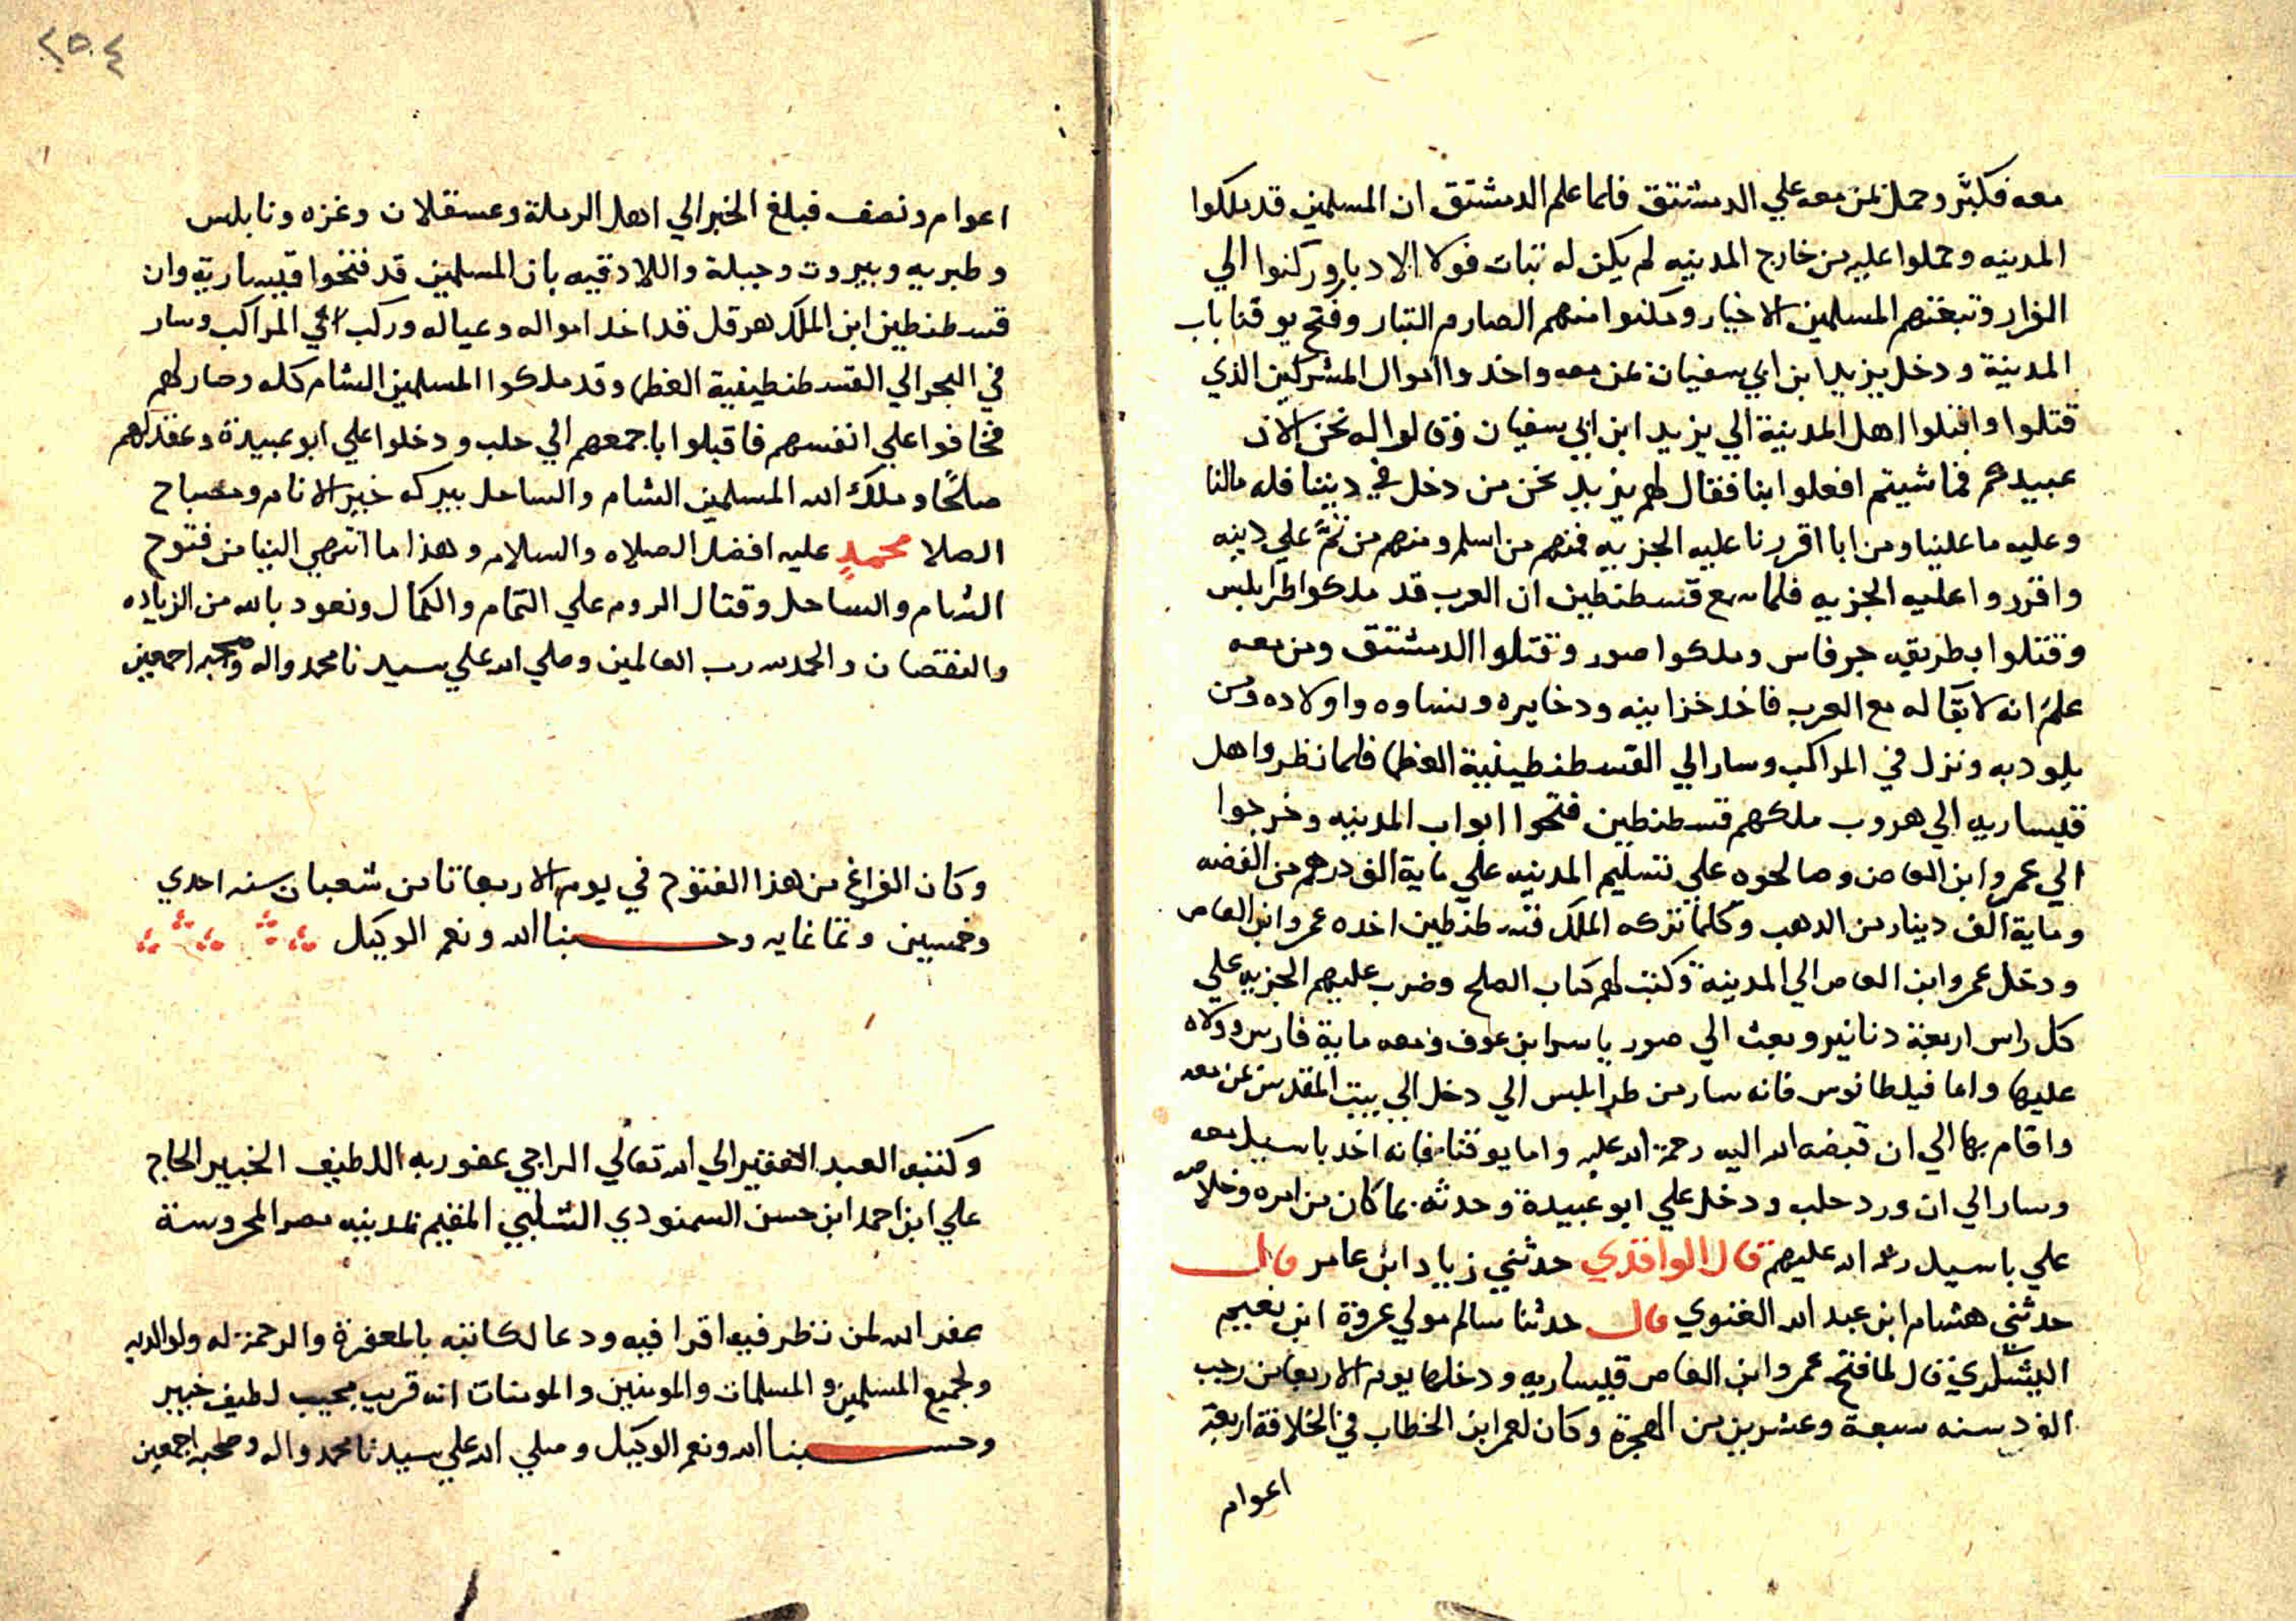 معه فكبّر وحمل بمن معه علي الدمشتق فلما علم الدمشتق ان المسلمين قد ملكوا
المدينه وحملوا عليه من خارج المدينه لم يكن له ثبات فولا الادبار وركنوا الي
الفرار وتبعتهم المسلمين الاخيار ومكنوا منهم الصارم التبار وفتح يوقنا باب
المدينة ودخل يزيد ابن ابي سفيان بمن معه واخدوا اموال المشركين الذي
قتلوا واقبلوا اهل المدينة الي يزيد ابن ابي سفيان وقالوا له نحن الان
عبيدكم فما شيتم افعلوا بنا فقال لهم يزيد نحن من دخل في ديننا فله مالنا
وعليه ما علينا ومن ابا اقررنا عليه الجزيه فمنهم من اسلم ومنهم من تمّ علي دينه
واقرروا عليه الجزيه فلما سمع قسطنطين ان العرب قد ملكوا طرابلس
وقتلوا بطريقه جرفاس وملكوا صور وقتلوا الدمشتق ومن معه
علم انه لا بقا له مع العرب فاخد خزاينه ودخايره ونساوه واولاده ومن
يلود به ونزل في المراكب وسار الي القسطنطينية العظما فلما نظروا اهل
قيساريه الي هروب ملكهم قسطنطين فتحوا ابواب المدينه وخرجوا
الي عمرو ابن العاص وصالحوه علي تسليم المدينه علي ماية الف درهم من الفضه
وماية الف دينار من الدهب وكلما تركه الملك قسطنطين اخده عمرو ابن العاص
ودخل عمرو ابن العاص الي المدينة وكتب لهم كتاب الصلح وضرب عليهم الجزيه علي
كل راس اربعة دنانير وبعث الي صور ياسر ابن عوف ومعه ماية فارس وولاه
عليها واما فيلطانوس فانه سار من طرابلس الي دخل الي بيت المقدس بمن معه
واقام بها الي ان قبضه الله اليه رحمة الله عليه واما يوقنا فانه اخد باسيل معه
وسار الي ان ورد حلب ودخل علي ابو عبيدة وحدثه بما كان من امره وخلاصه
علي باسيل رحمة الله عليهم قال الواقدي حدثني زياد ابن عامر قال
حدثني هشام ابن عبد الله الغنوي قال حدثنا سالم مولي عروة ابن نعيم
اليشكري قال لما فتح عمرو ابن العاص قيساريه ودخلها يوم الاربعا من رجب
الفرد سنه سبعة وعشرين من الهجرة وكان لعمر ابن الخطاب في الخلافة اربعة
اعوام
٢٥٤
اعوام ونصف فبلغ الخبر الي اهل الرملة وعسقلان وغزه ونابلس
وطبريه وبيروت وجبلة واللادقيه بان المسلمين قد فتحوا قيساريه وان
قسطنطين ابن الملك هرقل قد اخد امواله وعياله وركب في المراكب وسار
في البحر الي القسطنطينية العظما وقد ملكوا المسلمين الشام كله وصار لهم
فخافوا علي انفسهم فاقبلوا باجمعهم الي حلب ودخلوا علي ابو عبيدة وعقد لهم
صلحًا وملك الله المسلمين الشام والساحل ببركه خير الانام ومصباح
الصلا محمدٍ عليه افضل الصلاه والسلام وهذا ما انتهي الينا من فتوح
الشام والساحل وقتال الروم علي التمام والكمال ونعود بالله من الزياده
والنقصان والحمد لله رب العالمين وصلي الله علي سيدنا محمد واله وصحبه اجمعين
وكان الفراغ من هذا الفتوح في يوم الاربعا ثامن شعبان سنه احدي
وخمسين وثمانمايه وحسبنا الله ونعم الوكيل
وكتبه العبد الفقير الي الله تعالي الراجي عفو ربه اللطيف الخبير الحاج
علي ابن احمد ابن حسن السمنودي الشلبي المقيم بمدينه مصر المحروسة
غفر الله لمن نظر فيه اقرا فيه ودعا لكاتبه بالمغفرة والرحمة له ولوالديه
ولجميع المسلمين والمسلمات والمومنين والمومنات انه قريب مجيب لطيف خبير
وحسبنا الله ونعم الوكيل وصلي الله علي سيدنا محمد واله وصحبه اجمعين